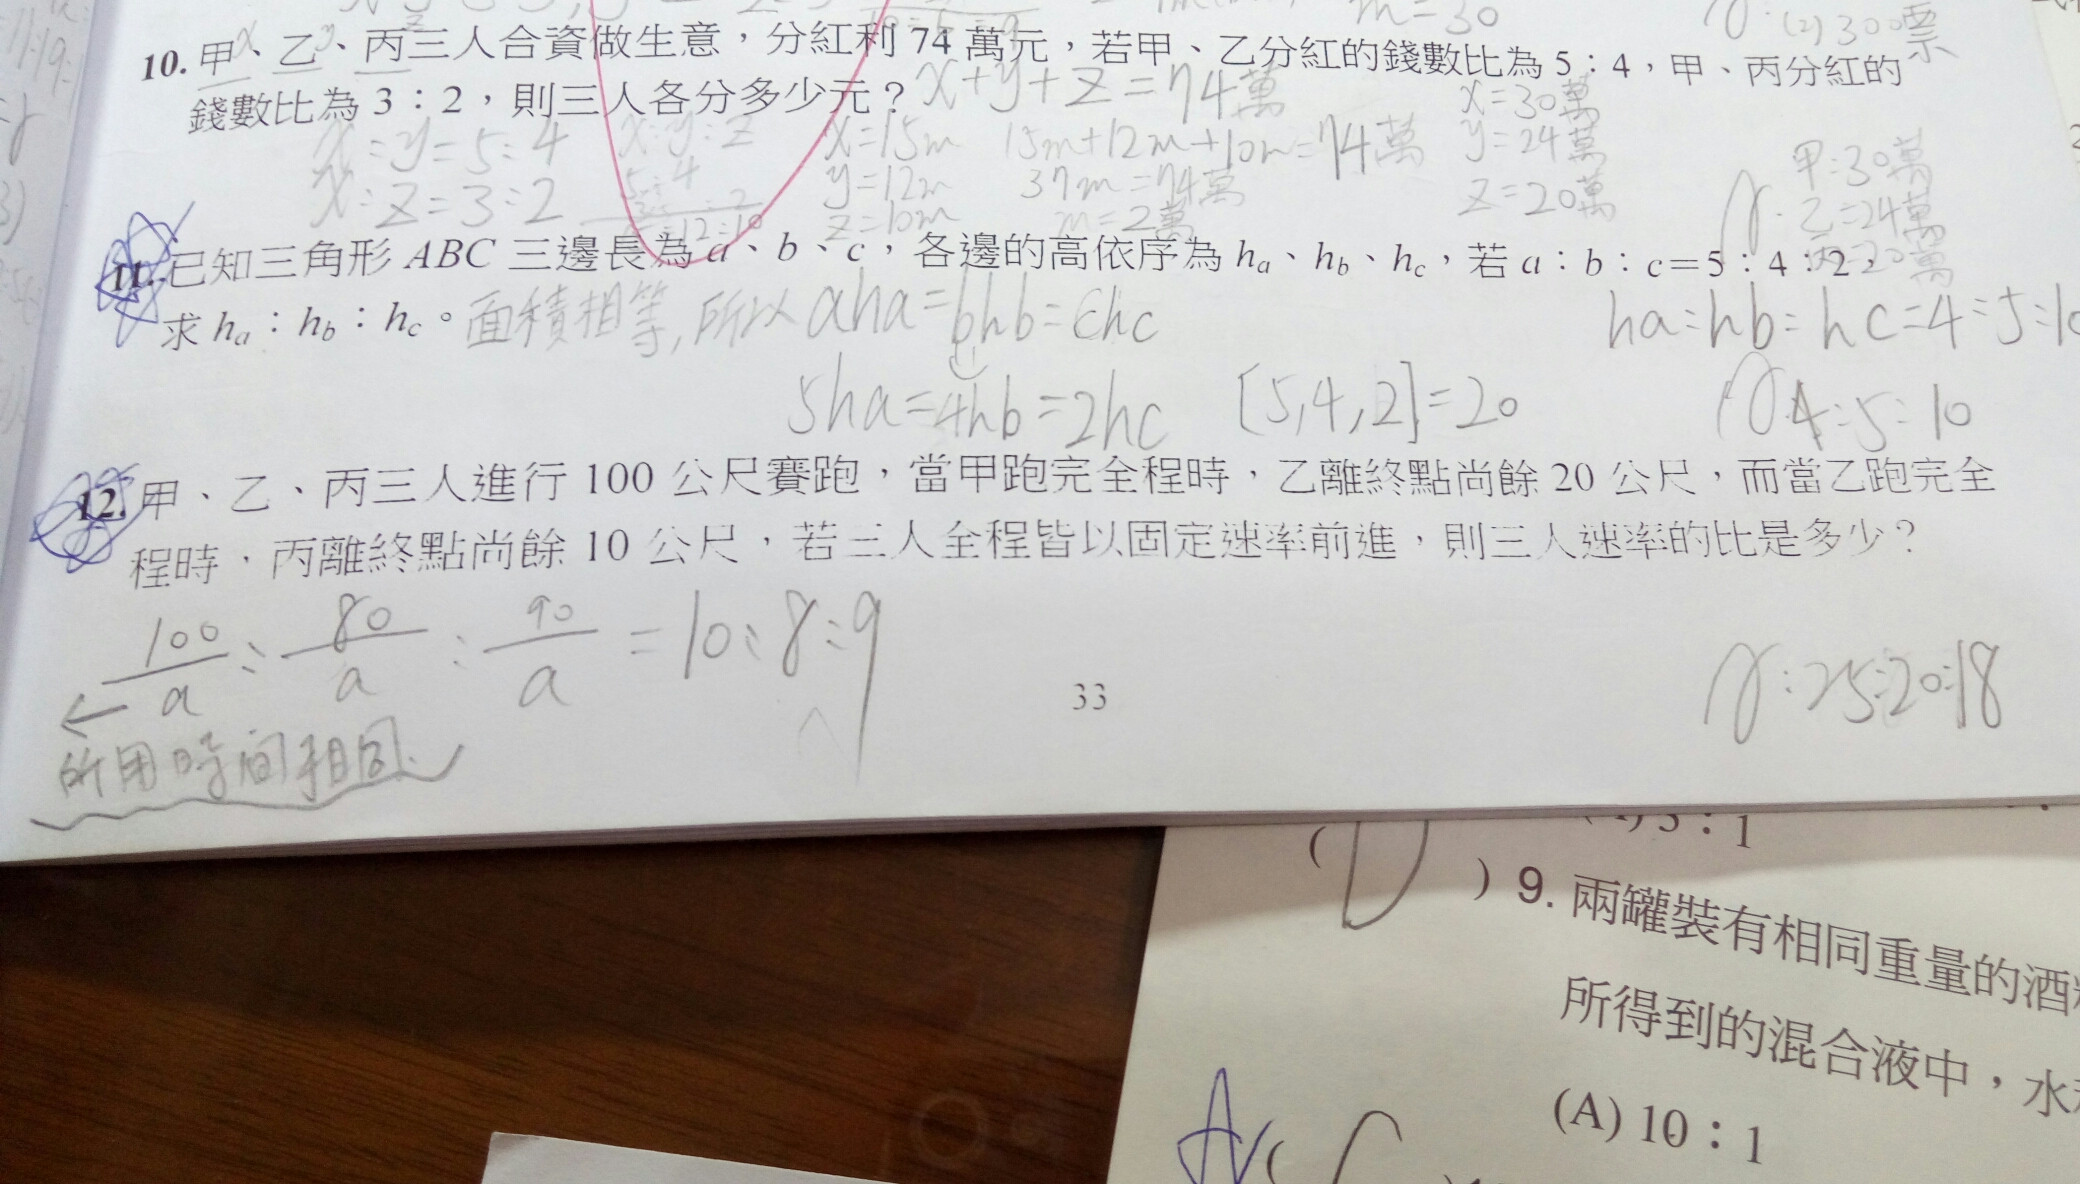 m=30
(2)300票
10. 甲、乙、丙三人合資做生意，分紅利74萬元，若甲、乙分紅的錢數比為5：4，甲、丙分紅的
錢數比為3：2，則三人各分多少元？
x+y+z=74萬
x:y=5:4
x:z=3:2
x:y:z
5:4
:12:10
x=15m
y=12m
z=10m
15m+12m+10m=74萬
37m=74萬
m=2萬
x=30萬
y=24萬
z=20萬
甲:30萬
乙=24萬
丙=20萬
11. 已知三角形ABC三邊長為a、b、c，各邊的高依序為ha、hb、hc，若a：b：c=5：4：2，
求ha：hb：hc。
面積相等,所以aha=bhb=chc
5ha=4hb=2hc
[5,4,2]=20
ha:hb:hc=4:5:10
4:5:10
12. 甲、乙、丙三人進行100公尺賽跑，當甲跑完全程時，乙離終點尚餘20公尺，而當乙跑完全
程時，丙離終點尚餘10公尺，若三人全程皆以固定速率前進，則三人速率的比是多少？
100/a:80/a:90/a=10:8:9
←所用時間相同
:25:20:18
33
5：1
( D ) 9. 兩罐裝有相同重量的酒
所得到的混合液中，水
(A) 10：1
A(